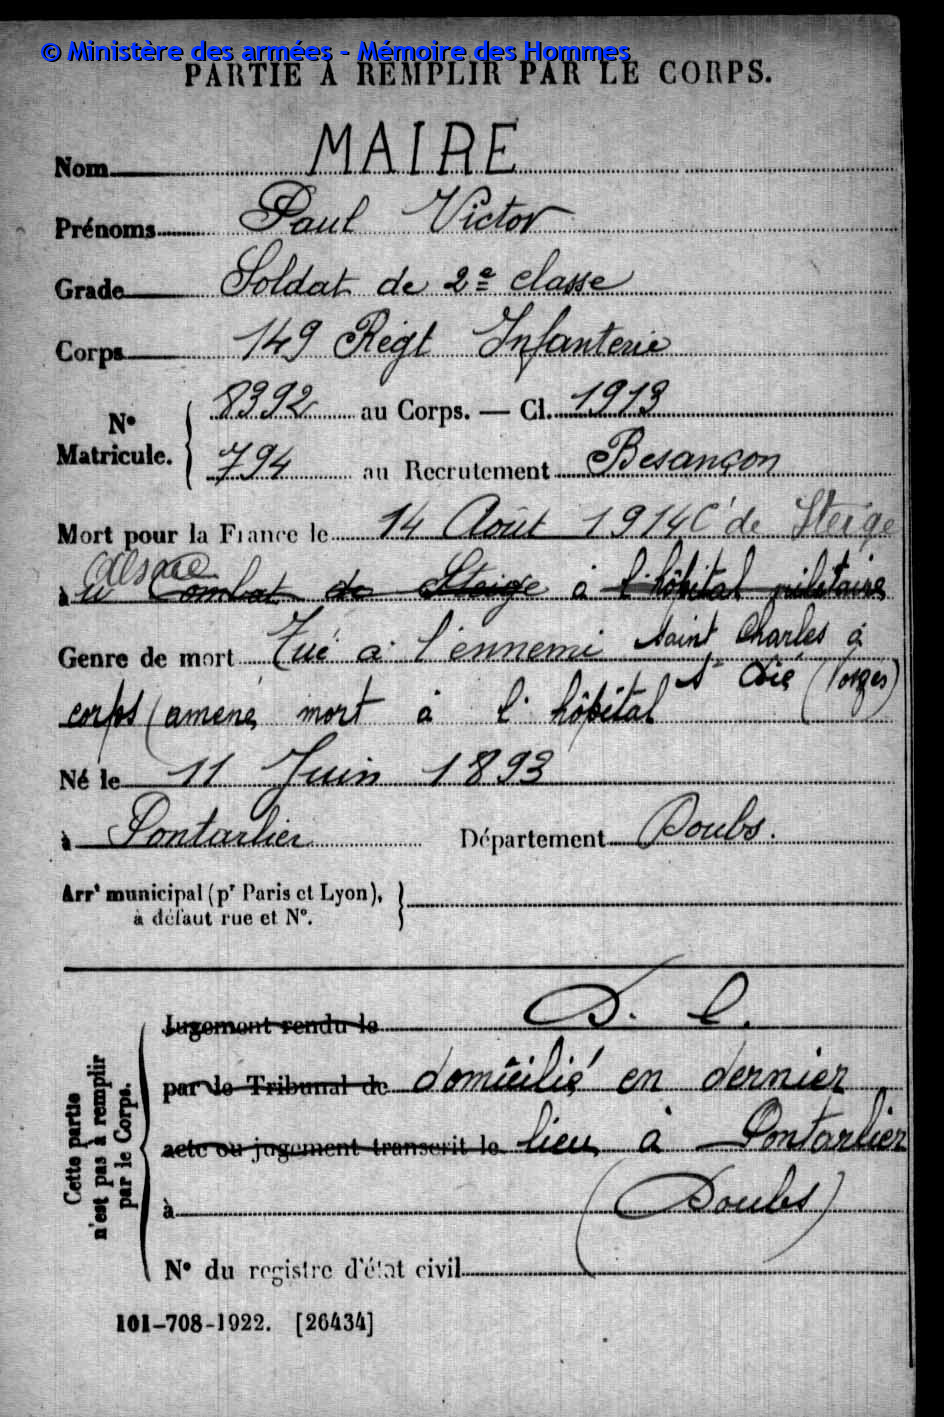 © Ministère des armées - Mémoire des Hommes
PARTIE À REMPLIR PAR LE CORPS.
Nom MAIRE
Prénoms Paul Victor
Grade Soldat de 2e classe
Corps 149 Régt Infanterie
N° Matricule. 8392 au Corps. — Cl. 1913
794 au Recrutement Besançon
Mort pour la France le 14 Août 1914 C de Steige
Alsace
à u Combat de Steige à l'hôpital militaire
Genre de mort Tué à l'ennemi Saint Charles à
St Dié (Vosges)
corps (amené, mort à l'hôpital
Né le 11 Juin 1893
à Pontarlier Département Doubs.
Arrt municipal (pr Paris et Lyon),
à défaut rue et N°.
Cette partie
n'est pas à remplir
par le Corps.
Jugement rendu le D. C.
par le Tribunal de domicilié en dernier
acte ou jugement transcrit le lieu à Pontarlier
à (Doubs)
N° du registre d'état civil
101-708-1922. [26434]